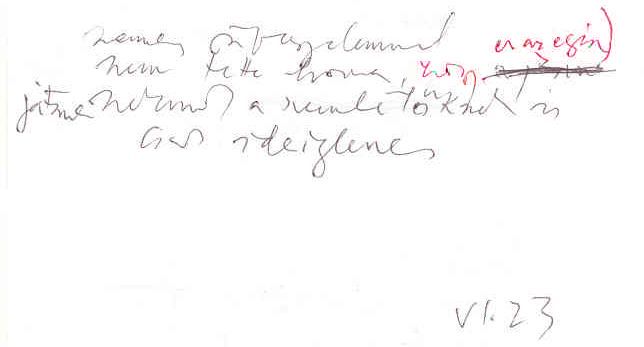 nemes önfegyelemmel
nem tette hozzá, hogy ez az egész
játszma a szemlélőknek is
csak ideiglenes
VI. 23